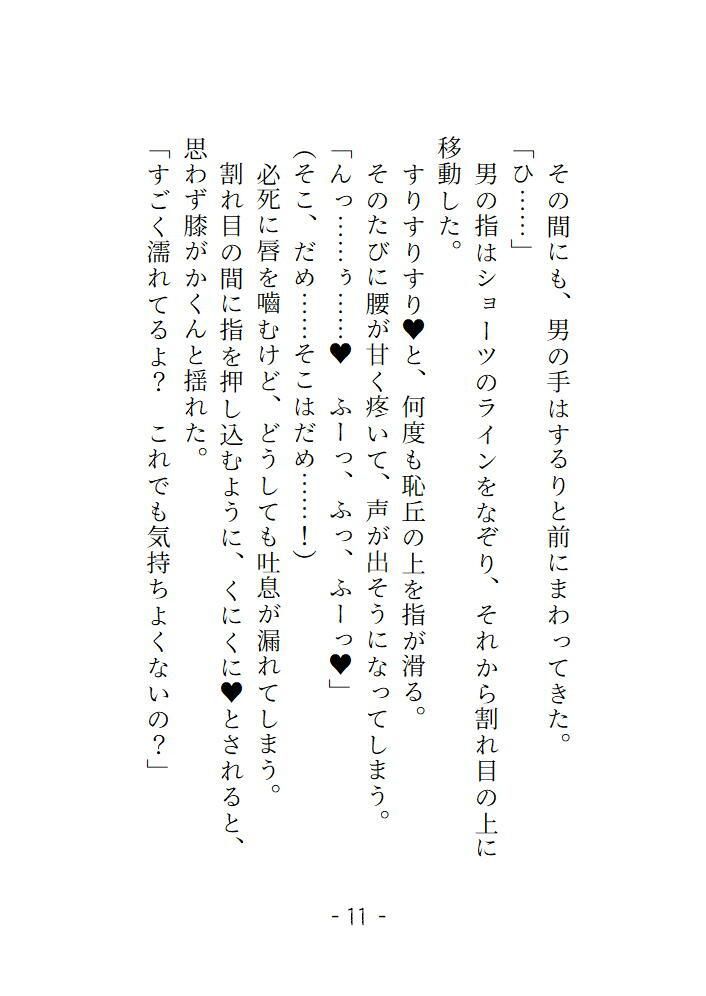 その間にも、男の手はするりと前にまわってきた。
「ひ……」
男の指はショーツのラインをなぞり、それから割れ目の上に
移動した。
すりすりすり♥と、何度も恥丘の上を指が滑る。
そのたびに腰が甘く疼いて、声が出そうになってしまう。
「んっ……ぅ……♥　ふーっ、ふっ、ふーっ♥」
（そこ、だめ……そこはだめ……！）
必死に唇を噛むけど、どうしても吐息が漏れてしまう。
割れ目の間に指を押し込むように、くにくに♥とされると、
思わず膝がかくんと揺れた。
「すごく濡れてるよ？　これでも気持ちよくないの？」
- 11 -